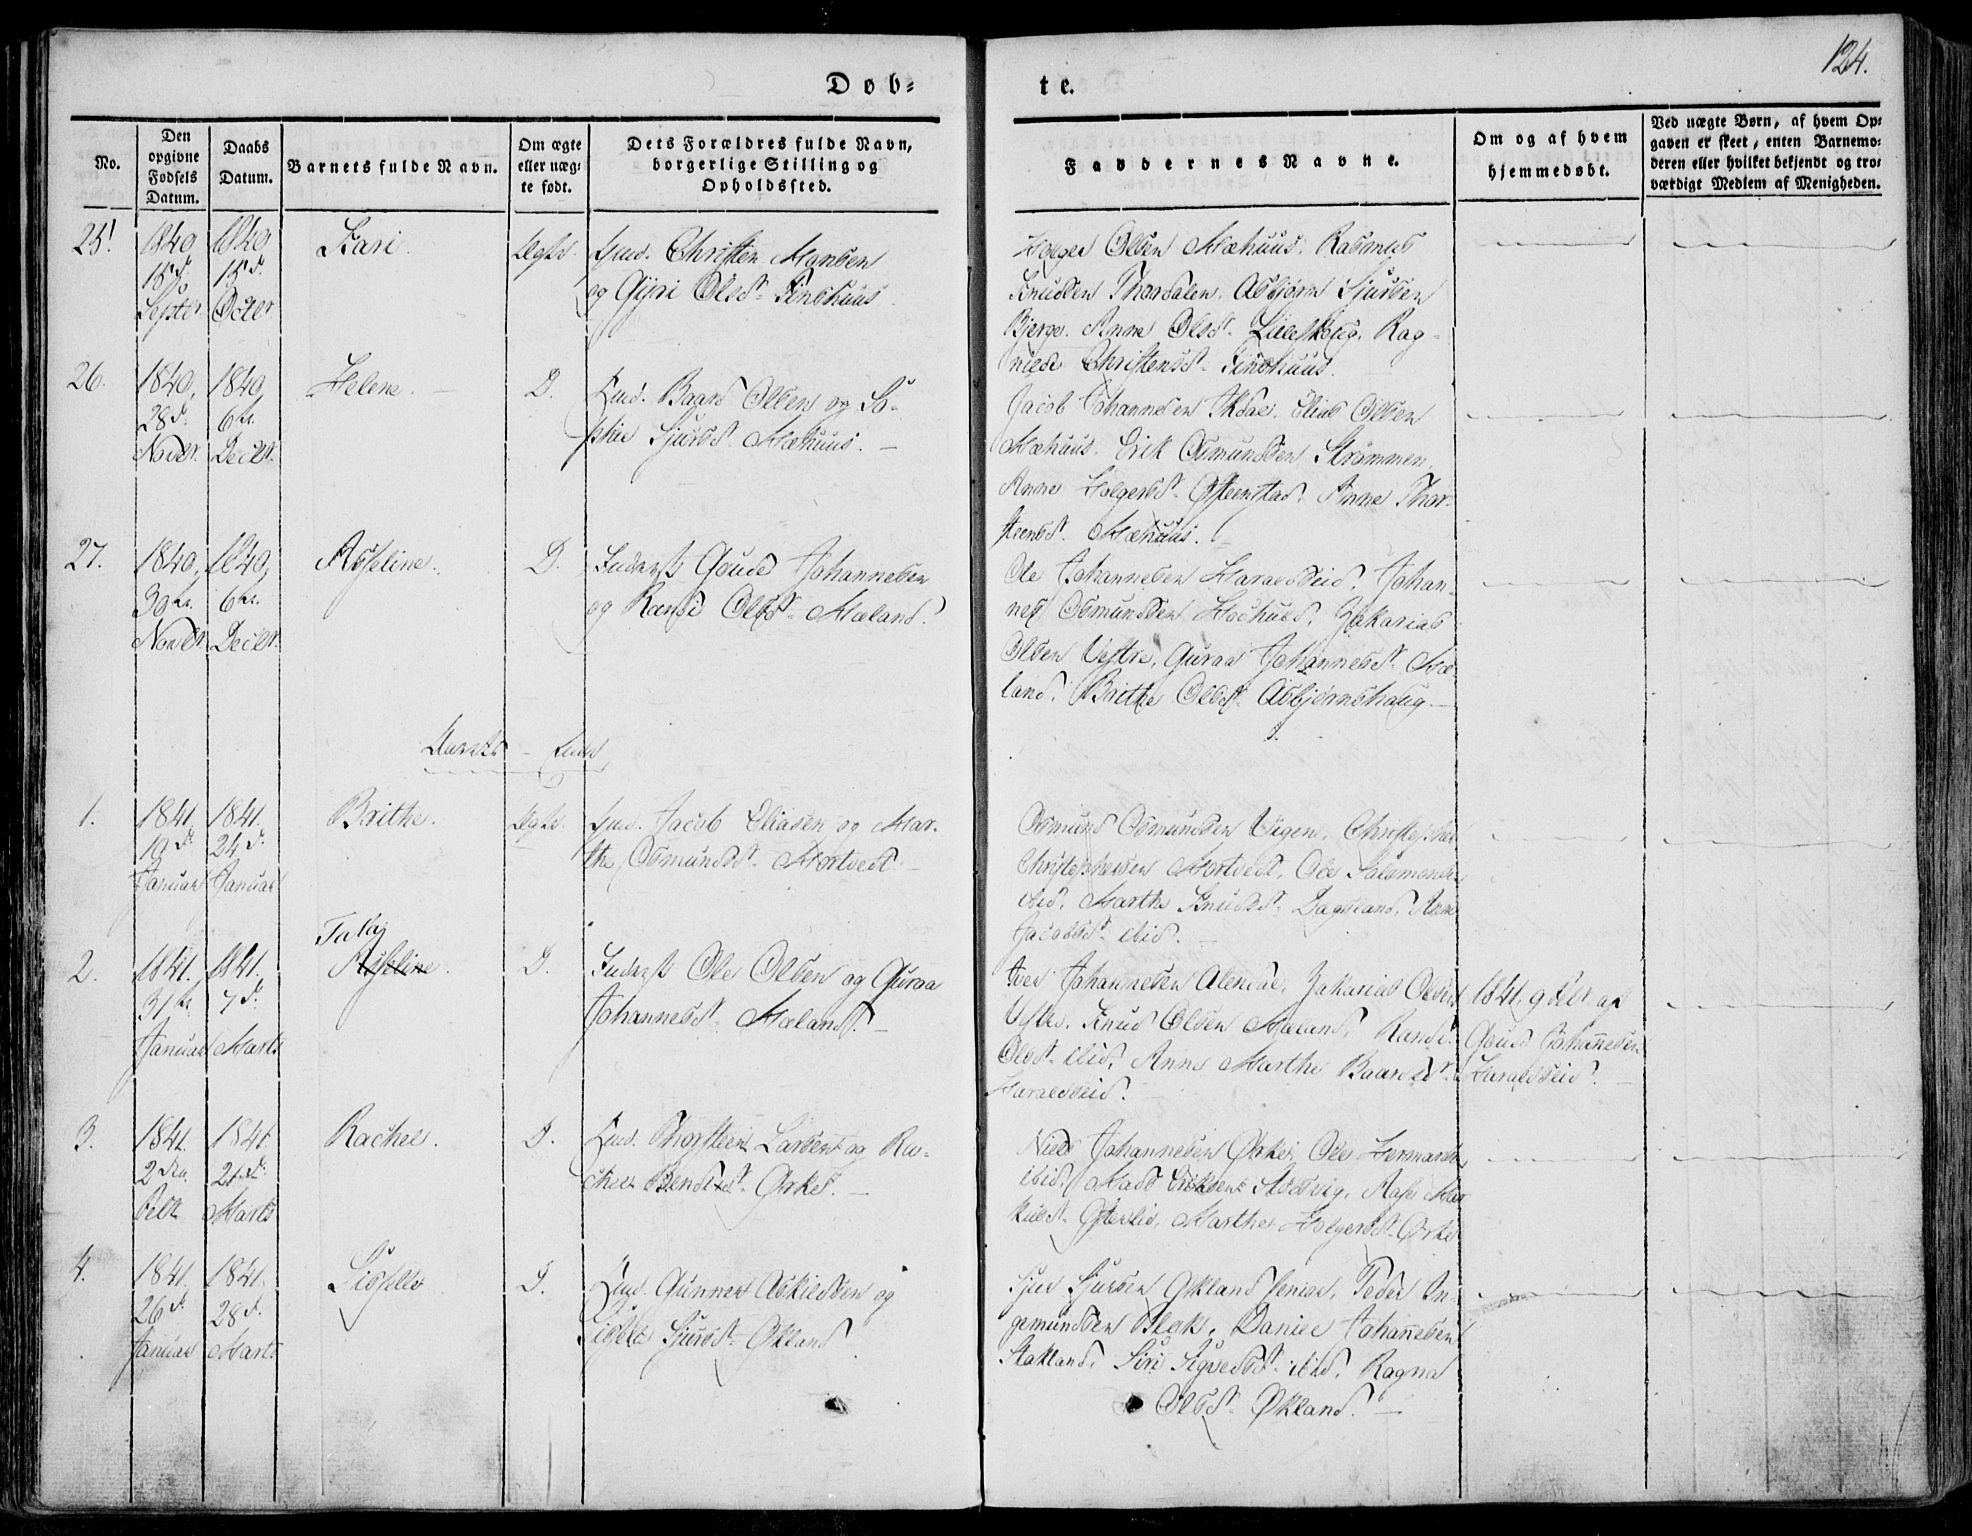 124.
Døb-
te.
No.
Den opgivne Fødsels Datum.
Daabs Datum.
Barnets fulde Navn.
Om ægte eller uæg- te født.
Dets Forældres fulde Navn, borgerlige Stilling og Opholdssted.
Faddernes Navne.
Om og af hvem hjemmedøbt.
Ved uægte Børn, af hvem Op- gaven er skeet, enten Barnemo- deren eller hvilket bekjendt og tro- værdigt Medlem af Menigheden.
25.
1840 15d. Septer
1840 15d. Octer
Kari.
Ægte.
Christen Monsen
og Gyri Olsdt.
Holger Olsen Mæhuus. Rasmus
Knudsen Thorsdalen. Asbjørn Sjursen
Bjerge. Anne Olsdt. Rag-
nilde Christensdt.
26.
1840, 28d. Novbr.
1840 6te. Decbr.
Helene.
D.
Gmd. Baard Olsen og So-
phie Sjursdt. Mæhuus.
Jacob Johannesen Elias Olsen
Mæhuus. Erik Osmundsen Strømmen.
Anne Holgersdt. Østeenstad. Anne Thor-
steensdt. Mæhuus.
27.
1840, 30te. Novbr.
1840, 6te. Decbr.
Asseline.
D.
Inderst Goude Johannesen
og Randi Olsdt. Mæland.
Ole Johannesen Haraldseid. Johan-
nes Osmundsen Zakarias
Olsen Vestre. Guraa Johannesdt. Mæ-
land. Brithe Olsdt. Asbjørnshaug.
Aarets Ende
1.
1841. 19d. Januar
1841. 24d. Januar
Brithe.
Ægte.
Gmd. Jacob Eliasen og Mar-
the Osmundsdt. Mortvedt.
Osmund Osmundsen Vigen. Christopher
Christophersen Mortvedt. Ole Salomonsen
ibid. Marthe Knudsdt. Dagsland. Anne
Jacobsdt. ibid.
2.
1841. 31te. Januar
1841. 7d. Marts
Talaj
Asseline.
D.
Inderst Ole Olsen og Guraa
Johannesdt. Mæland.
Iver Johannesen Alendal. Zakarias Olsen
Vestre. Knud Olsen Mæland. Randi
Olsdt. ibid. Anne Marthe Baardsdt.
Haraldseid.
1841. 9 Febr af
Goude Johannesen
Haraldseid.
3.
1841. 2den Febr.
1841 21d. Marts
Rachel.
D.
Gmd. Thorsteen Larsen og Ra-
chel Bendixdt. Ørke.
Niels Johannesen Ørke. Ole Hermansen
ibid. Mads Eriksen Aase
Østerlid. Marthe Holgersdt. Ørke
4.
1841. 26d. Januar
1841. 28d. Marts
Sisselle
D.
Gmd. Gunner Askildsen og
Sissele Sjursdt. Økland.
Sjur Sjursen Økland Peder In-
gemundsen Bleik. Daniel Johannesen
Stakland. Siri Sigvedsdt. ibid. Ragna
Olsdt. Økland.